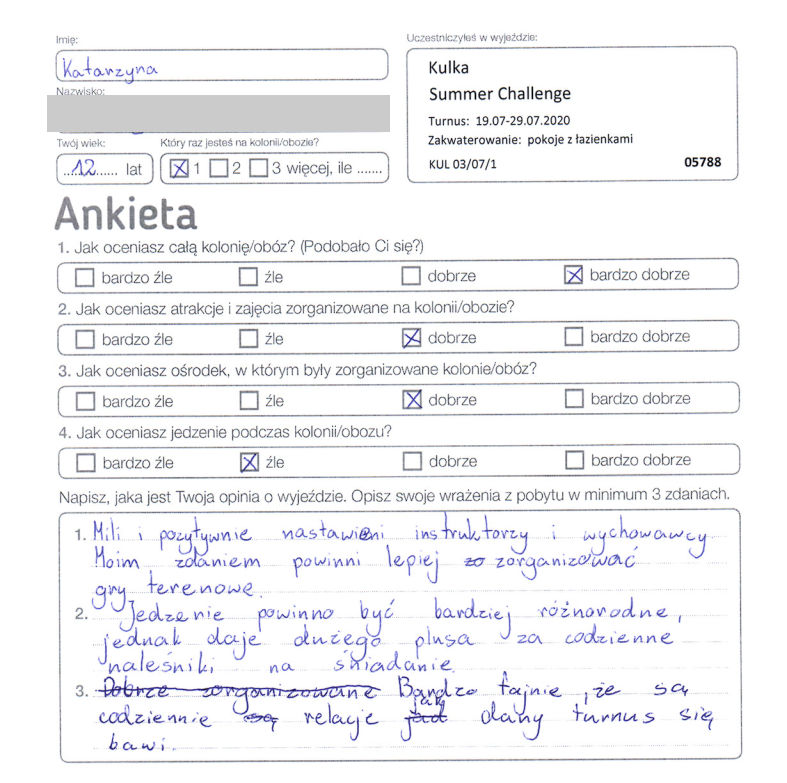 Imię:
Katarzyna
Nazwisko:
Twój wiek:
12 lat
Który raz jesteś na kolonii/obozie?
1 2 3 więcej, ile .......
Uczestniczyłeś w wyjeździe:
Kulka
Summer Challenge
Turnus: 19.07-29.07.2020
Zakwaterowanie: pokoje z łazienkami
KUL 03/07/1 05788
Ankieta
1. Jak oceniasz całą kolonię/obóz? (Podobało Ci się?)
bardzo źle źle dobrze bardzo dobrze
2. Jak oceniasz atrakcje i zajęcia zorganizowane na kolonii/obozie?
bardzo źle źle dobrze bardzo dobrze
3. Jak oceniasz ośrodek, w którym były zorganizowane kolonie/obóz?
bardzo źle źle dobrze bardzo dobrze
4. Jak oceniasz jedzenie podczas kolonii/obozu?
bardzo źle źle dobrze bardzo dobrze
Napisz, jaka jest Twoja opinia o wyjeździe. Opisz swoje wrażenia z pobytu w minimum 3 zdaniach.
1. Mili i pozytywnie nastawieni instruktorzy i wychowawcy
Moim zdaniem powinni lepiej zo zorganizować
gry terenowe.
2. Jedzenie powinno być bardziej różnorodne,
jednak daje dużego plusa za codzienne
naleśniki na śniadanie.
3. Dobrze zorganizowane Bardzo fajnie, że są
codziennie są relacje jad jak dany turnus się
bawi.